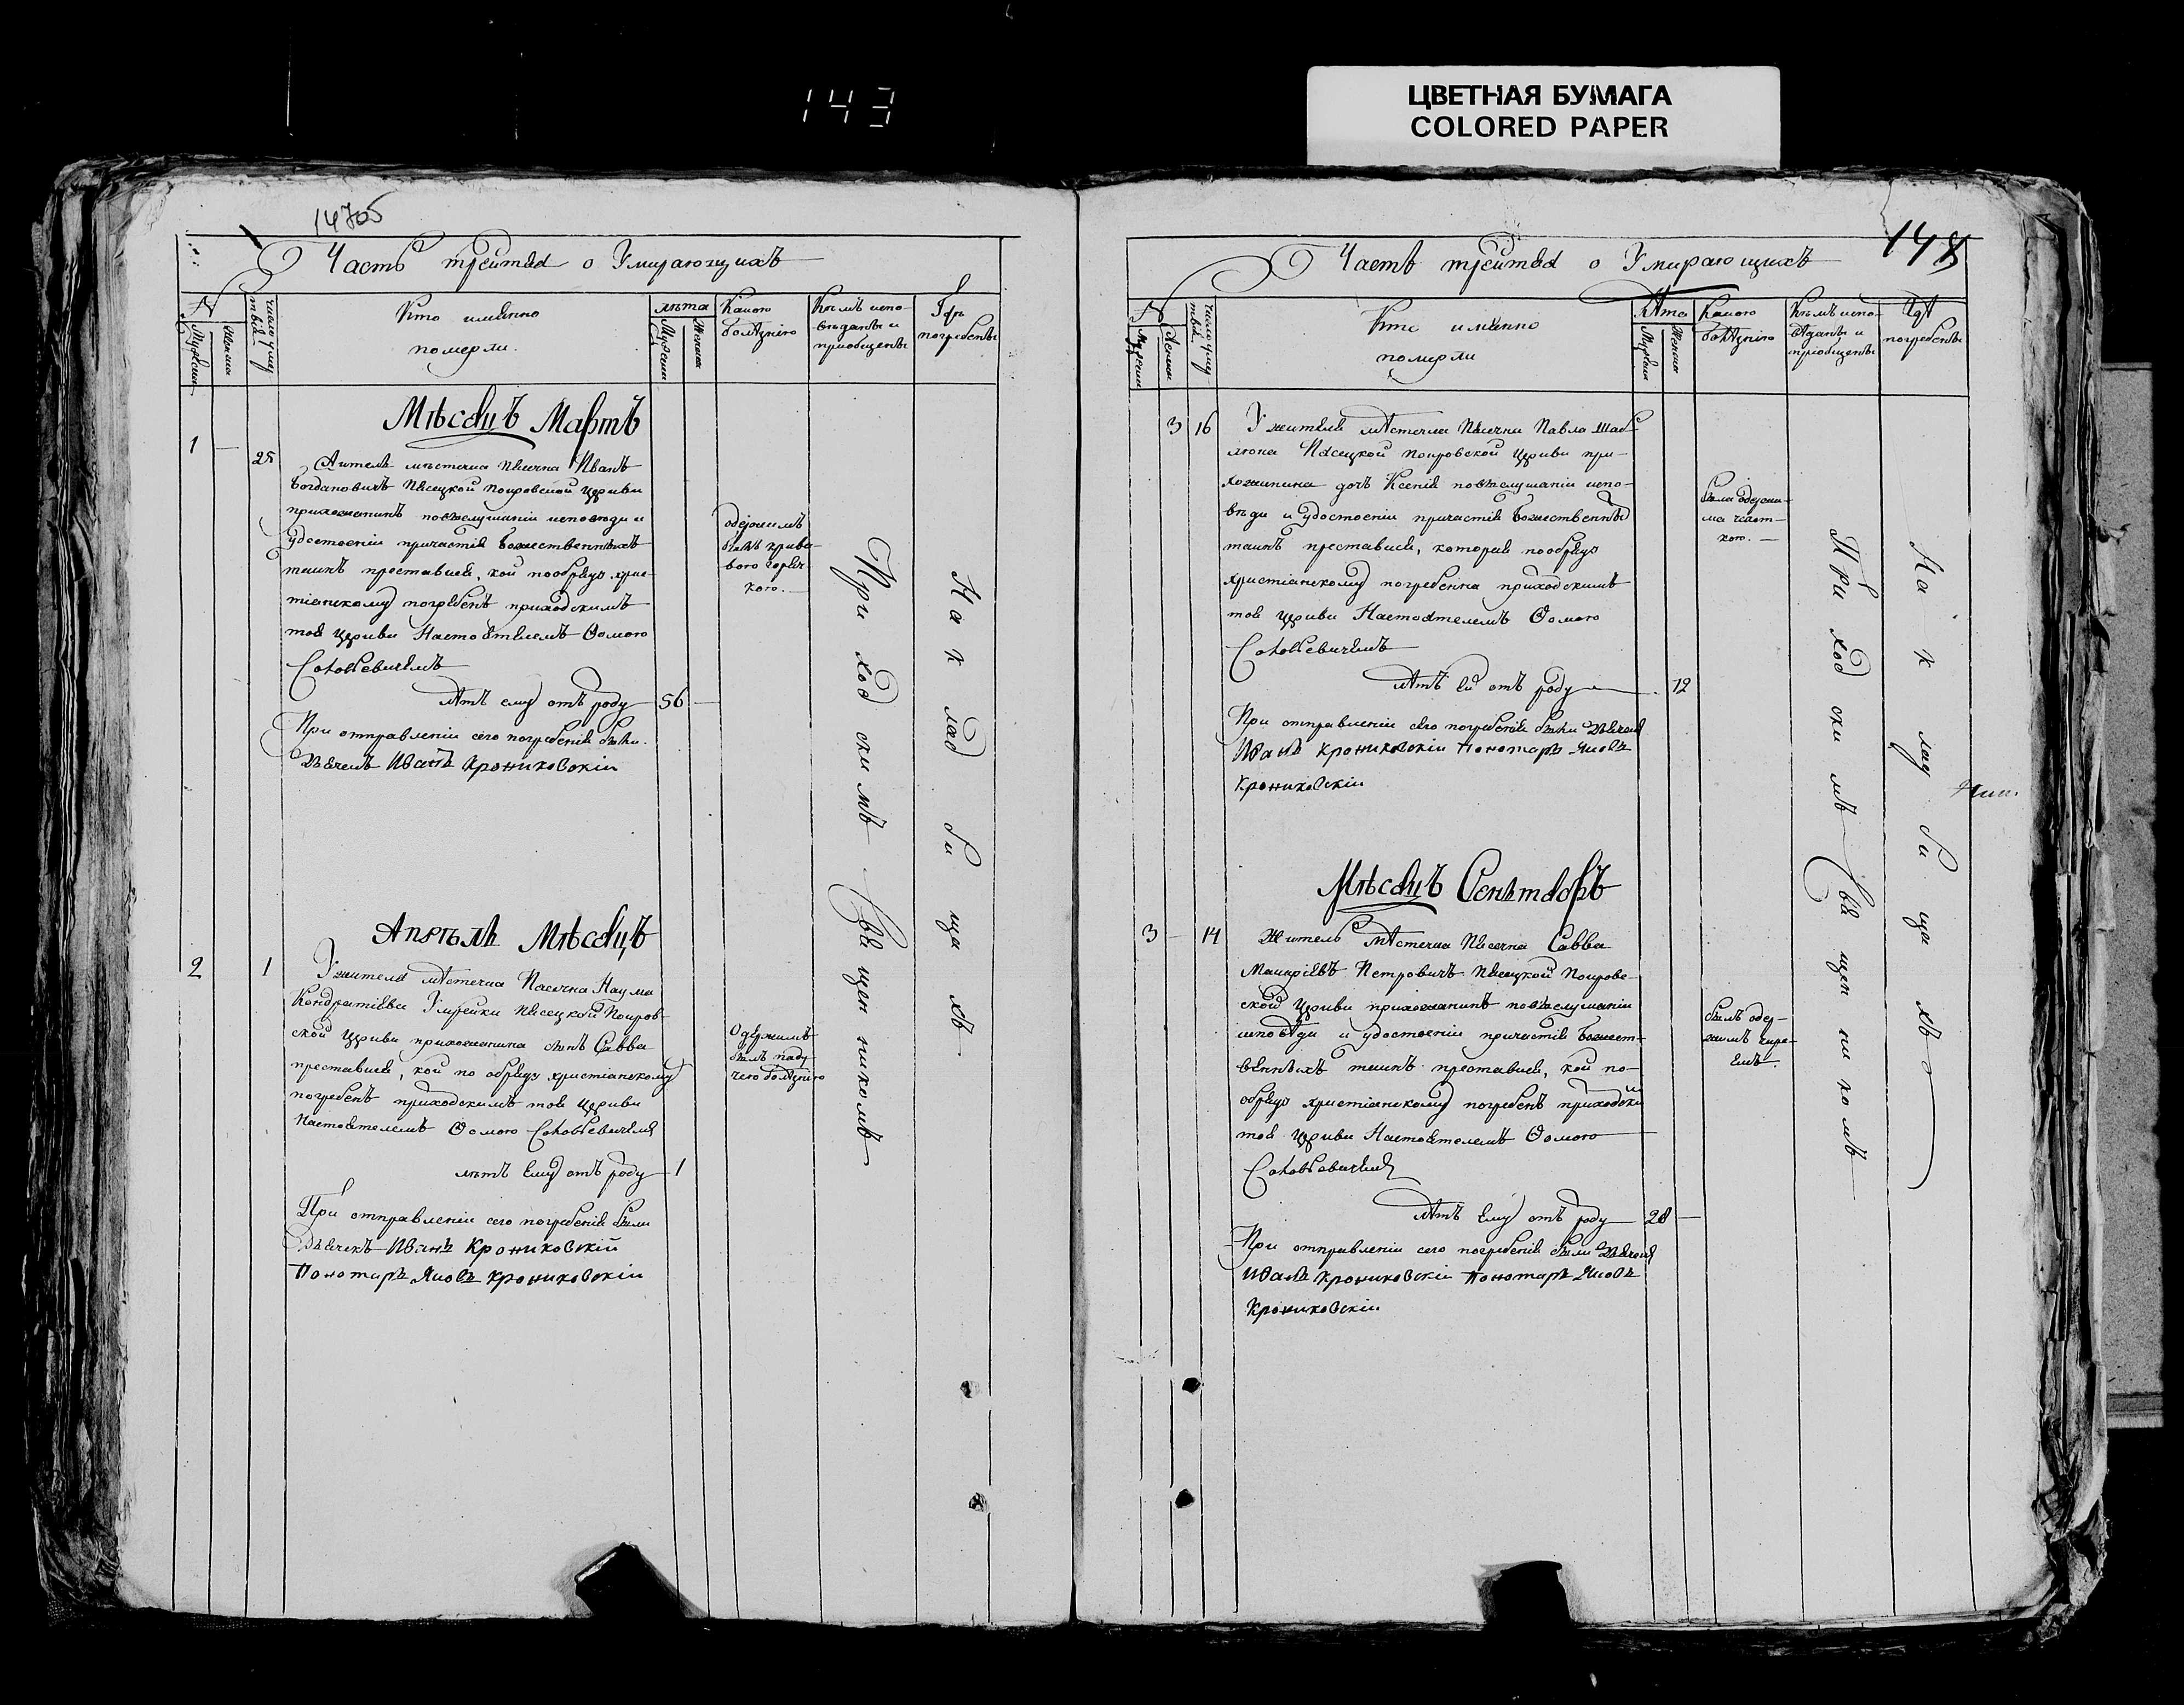 143
ЦВЕТНАЯ БУМАГА
COLORED PAPER
Часть третяя о Умирающихъ
№
Мужескій
Женскій
Кто имѣнно
померли.
лѣта
Мужескій
Женскій
Какою
болѣзнію
Кѣмъ испо-
вѣданы и
приобщены
Гдѣ
погребены
Мѣсяцъ Мартъ
1
25
Житель мѣстечка Пѣсечна Иванъ
Богдановичъ Пѣсецкой Покровской Церкви
прихожанинъ повыслушаніи исповѣди и
удостоеніи причастія Божественныхъ
таинъ преставися, кой пообряду хрис-
тіанскому погребенъ приходскимъ
тоя Церкви Настоятелемъ Ѳомою
Соловѣевичемъ
лѣтъ ему отъ роду 56
При отправленіи сего погребенія были
Дьячекъ Иванъ Крониковскій
одержимъ
былъ крива-
вого
кого.
Приходскимъ Священникомъ
На кладбищахъ
Апрѣль Мѣсяцъ
2
1
У жителя мѣстечка Пасечна Наума
Кондратіева Пѣсецкой Покров-
ской Церкви прихожанина сынъ Савва
преставися, кой по обряду христіанскому
погребенъ приходскимъ тоя Церкви
Настоятелемъ Ѳомою Соловѣевичемъ
лѣтъ Ему отъ роду 1
При отправленіи сего погребенія были
Дьячекъ Иванъ Крониковскій
Пономаръ Яковъ Крониковскій
Одержимъ
былъ паду-
чего болѣзнію
Часть третяя о Умирающихъ
№
Мужескій
Женскій
Кто имѣнно
померли
Лѣта
Мужескій
Женскій
Какою
болѣзнію
Кѣмъ испо-
вѣданы и
приобщены
Гдѣ
погребены
3
16
У жителя мѣстечка Пѣсечна Павла Шаб-
люка Пѣсецкой Покровской Церкви при-
хожанина дочъ Ксенія повыслушаніи испо-
вѣди и удостоеніи причастія Божественныхъ
таинъ преставися, которая пообряду
христіанскому погребенна приходскимъ
тоя Церкви Настоятелемъ Ѳомою
Соловѣевичемъ
лѣтъ Ей отъ роду 12
При отправленіи сего погребенія были Дьячекъ
Иванъ Крониковскіи Пономаръ Яковъ
Крониковскіи
была одержи-
ма
кого.
Приходскимъ Священникомъ
На кладбищахъ
Мѣсяцъ Сентябръ
3
14
Житель мѣстечка Пѣсечна Савва
Петровичъ Пѣсецкой Покров-
ской Церкви прихожанинъ повыслушаніи
исповѣди и удостоеніи причастія Божест-
венныхъ таинъ преставися, кой по-
обряду христіанскому погребенъ приходски
тоя Церкви Настоятелемъ Ѳомою
Соловѣевичемъ
лѣтъ Ему отъ роду 28
При отправленіи сего погребенія были Дьячекъ
Иванъ Крониковскіи Пономаръ Яковъ
Крониковскіи
былъ одер-
жимъ чире-
емъ.